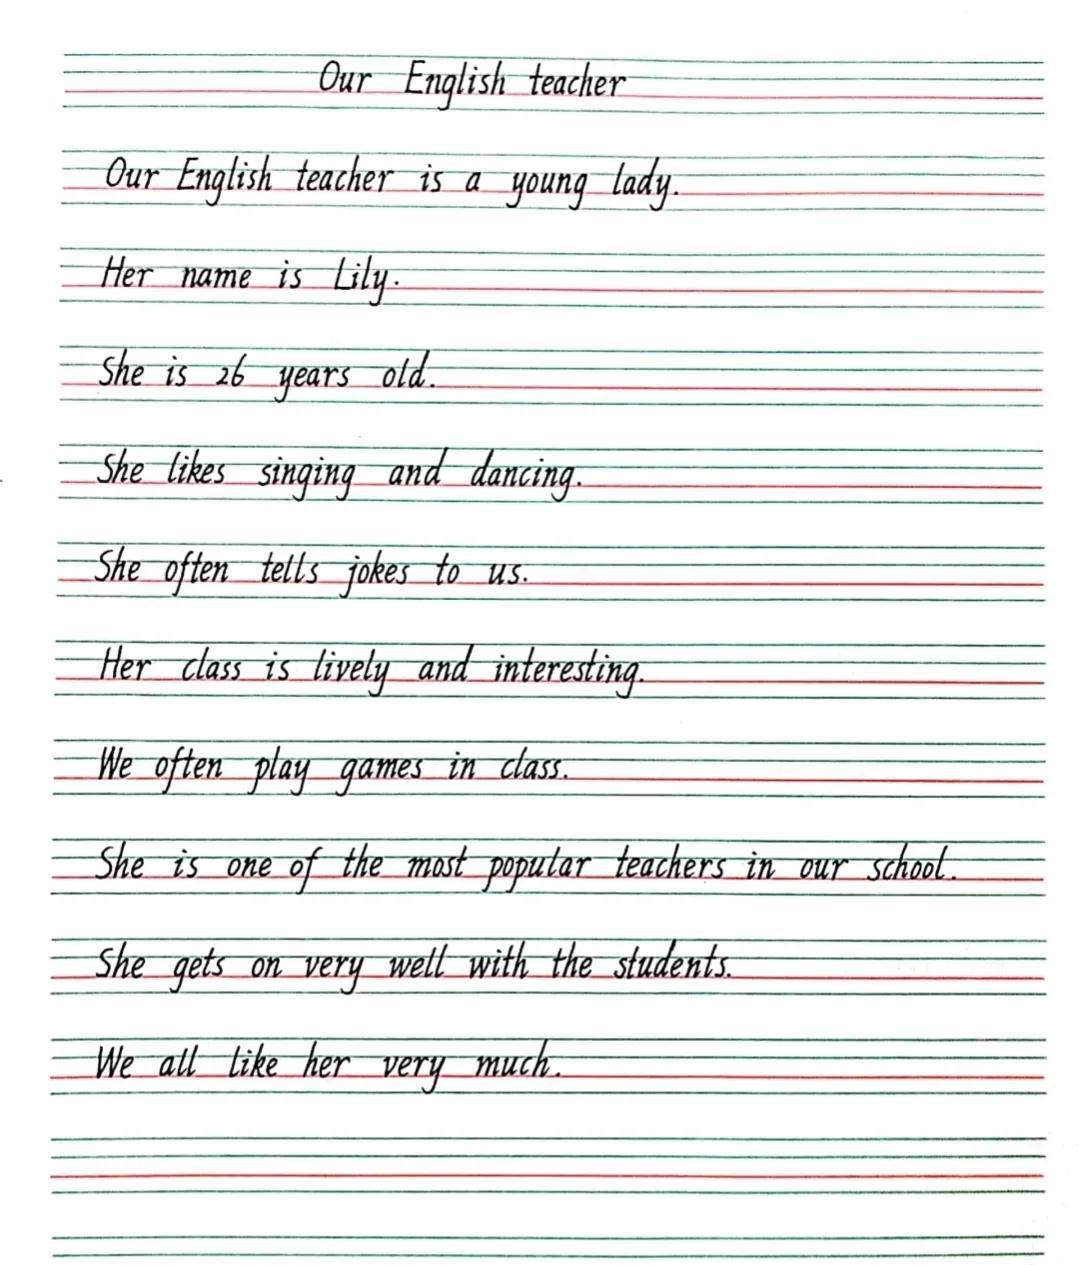 Our English teacher
Our English teacher is a young lady.
Her name is Lily.
She is 26 years old.
She likes singing and dancing.
She often tells jokes to us.
Her class is lively and interesting.
We often play games in class.
She is one of the most popular teachers in our school.
She gets on very well with the students.
We all like her very much.